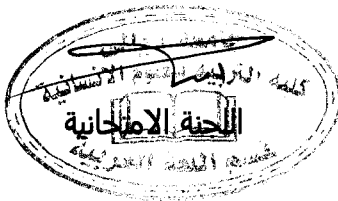 كلية التربية للعلوم الانسانية
اللجنة الامتحانية
قسم اللغة العربية